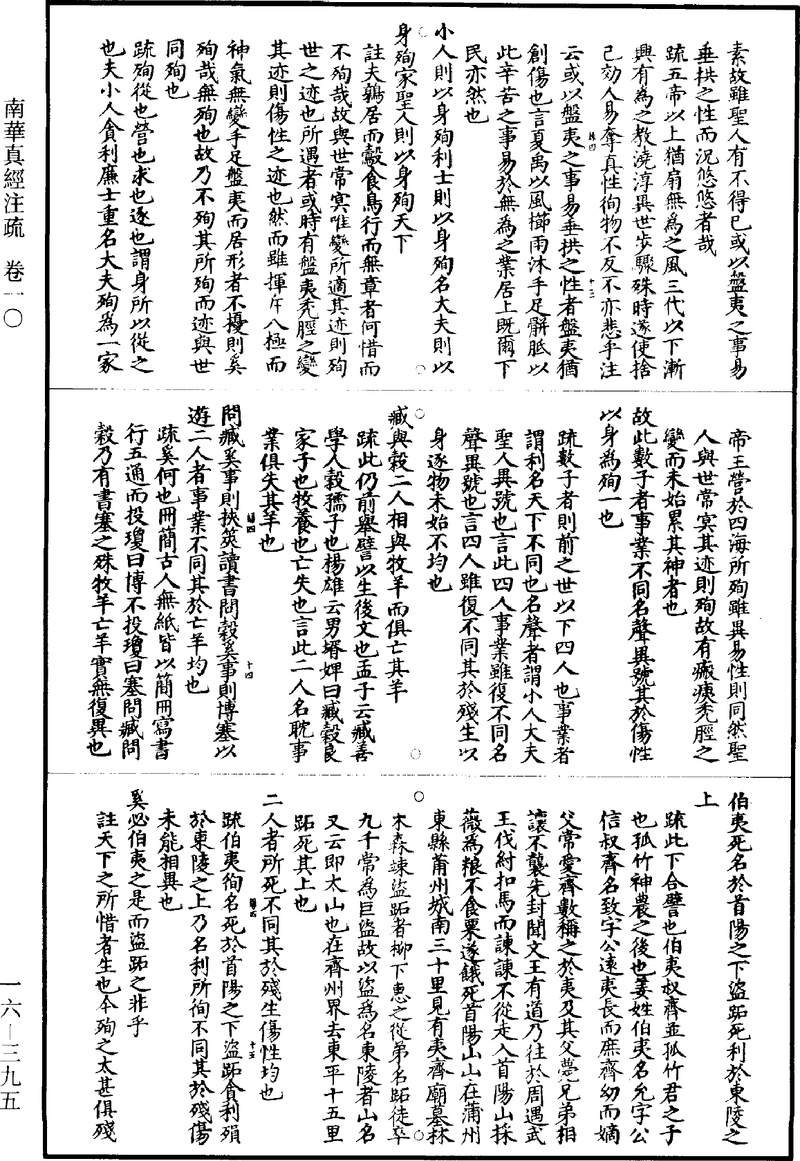 南華真經注疏　卷一〇
一六—三九五
素故雖聖人有不得已或以盤夷之事易
垂拱之性而況悠悠者哉
疏五帝以上猶扇無為之風三代以下漸
興有為之教澆淳異世步驟殊時遂使捨
己効人易奪真性徇物不反不亦悲乎注
云或以盤夷之事易垂拱之性者盤夷猶
創傷也言夏禹以風櫛雨沐手足胼胝以
此辛苦之事易於無為之業居上既爾下
民亦然也
小人則以身殉利士則以身殉名大夫則以
身殉家聖人則以身殉天下
註夫鶉居而鷇食鳥行而無章者何惜而
不殉哉故與世常冥唯變所適其迹則殉
世之迹也所遇者或時有盤夷禿脛之變
其迹則傷性之迹也然而雖揮斥八極而
神氣無變手足盤夷而居形者不擾則奚
殉哉無殉也故乃不殉其所殉而迹與世
同殉也
疏殉從也營也求也逐也謂身所以從之
也夫小人貪利廉士重名大夫殉為一家
帝王營於四海所殉雖異易性則同然聖
人與世常冥其迹則殉故有瘢痍禿脛之
變而未始累其神者也
故此數子者事業不同名聲異號其於傷性
以身為殉一也
疏數子者則前之世以下四人也事業者
謂利名天下不同也名聲者謂小人大夫
聖人異號也言此四人事業雖復不同名
聲異號也言四人雖復不同其於殘生以
身逐物未始不均也
臧與穀二人相與牧羊而俱亡其羊
疏此仍前舉譬以生後文也孟子云臧善
學人穀孺子也楊雄云男壻婢曰臧穀良
家子也牧養也亡失也言此二人各耽事
業俱失其羊也
問臧奚事則挾筴讀書問穀奚事則博塞以
遊二人者事業不同其於亡羊均也
疏奚何也冊簡古人無紙皆以簡冊寫書
行五通而投瓊曰博不投瓊曰塞問臧問
穀乃有書塞之殊牧羊亡羊實無復異也
伯夷死名於首陽之下盜跖死利於東陵之
上
疏此下合譬也伯夷叔齊並孤竹君之子
也孤竹神農之後也姜姓伯夷名允字公
信叔齊名致字公遠夷長而庶齊幼而嫡
父常愛齊數稱之於夷及其父薨兄弟相
讓不襲先封聞文王有道乃往於周遇武
王伐紂扣馬而諫諫不從走入首陽山採
薇為糧不食粟遂餓死首陽山山在蒲州
東縣蒲州城南三十里見有夷齊廟墓林
木森竦盜跖者柳下惠之從弟名跖徒卒
九千常為巨盜故以盜為名東陵者山名
又云即太山也在齊州界去東平十五里
跖死其上也
二人者所死不同其於殘生傷性均也
疏伯夷徇名死於首陽之下盜跖貪利殞
於東陵之上乃名利所徇不同其於殘傷
未能相異也
奚必伯夷之是而盜跖之非乎
註天下之所惜者生也今殉之太甚俱殘